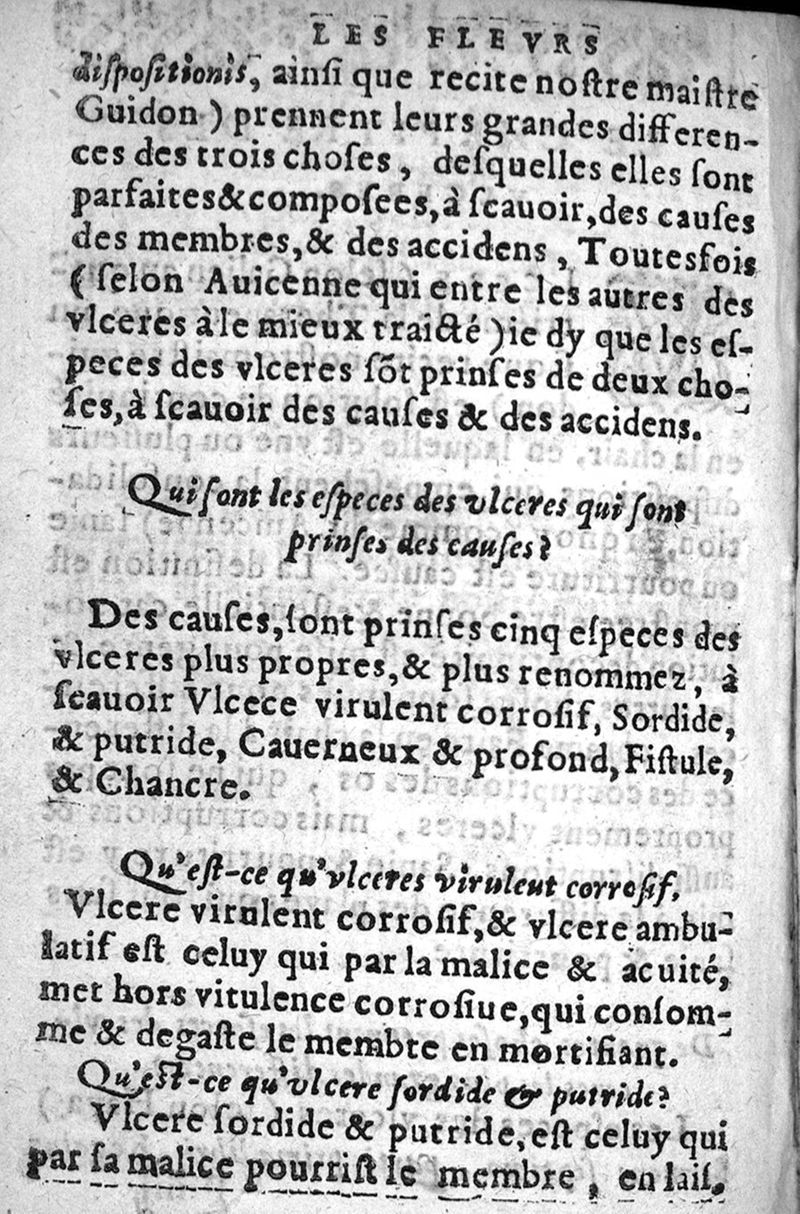 LES FLEVRS
diſpoſitionis, ainſi que recite noſtre maiſtre
Guidon ) prennent leurs grandes differen-
ces des trois choſes, deſquelles elles ſont
parfaites&compoſees, à ſcauoir, des cauſes
des membres, & des accidens, Toutesfois
( ſelon Auicenne qui entre les autres des
vlceres à le mieux traicté ) ie dy que les eſ-
peces des vlceres ſõt prinſes de deux cho-
ſes, à ſcauoir des cauſes & des accidens.
Qui ſont les eſpeces des vlceres qui ſont
prinſes des cauſes?
Des cauſes, ſont prinſes cinq eſpeces des
vlceres plus propres, & plus renommez, à
ſcauoir Vlcece virulent corroſif, Sordide,
& putride, Cauerneux & profond, Fiſtule,
& Chancre.
Qu'eſt-ce qu'vlceres viruleut corroſif.
Vlcere virulent corroſif, & vlcere ambu-
latif eſt celuy qui par la malice & acuité,
met hors vitulence corroſiue, qui conſom-
me & degaſte le membre en mortifiant.
Qu'eſt-ce qu'vlcere ſordide & putride?
Vlcere ſordide & putride, eſt celuy qui
par ſa malice pourriſt le membre, en laiſ.